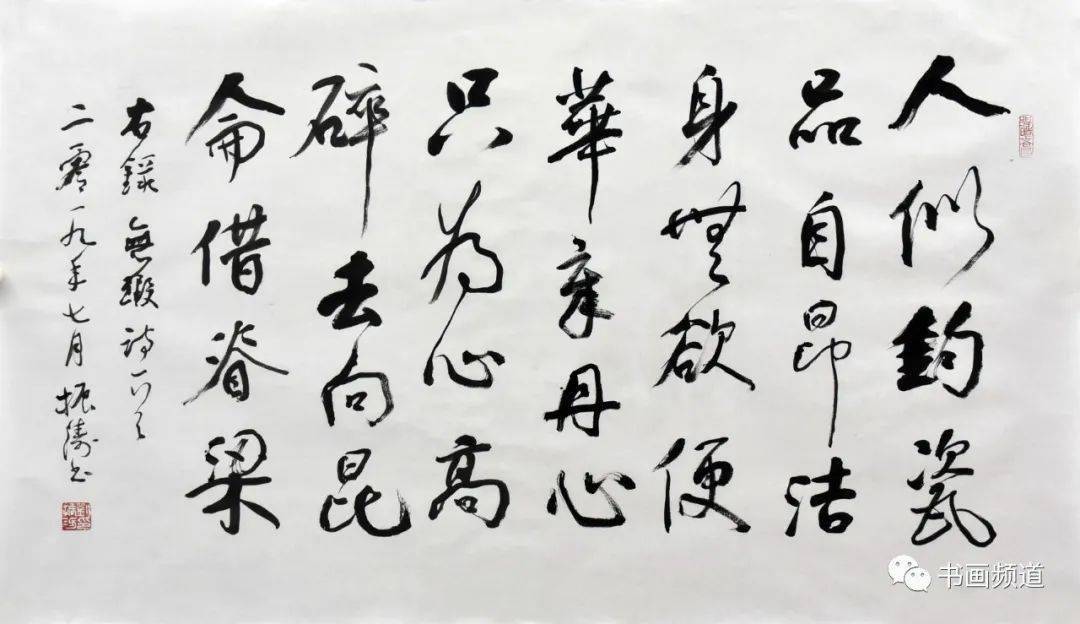 人似鈞瓷
品自昂洁
身無欲便
華章丹心
只为心高
碎去向昆
侖借脊梁
右錄無瑕诗一首
二零一九年七月振涛书
书画频道